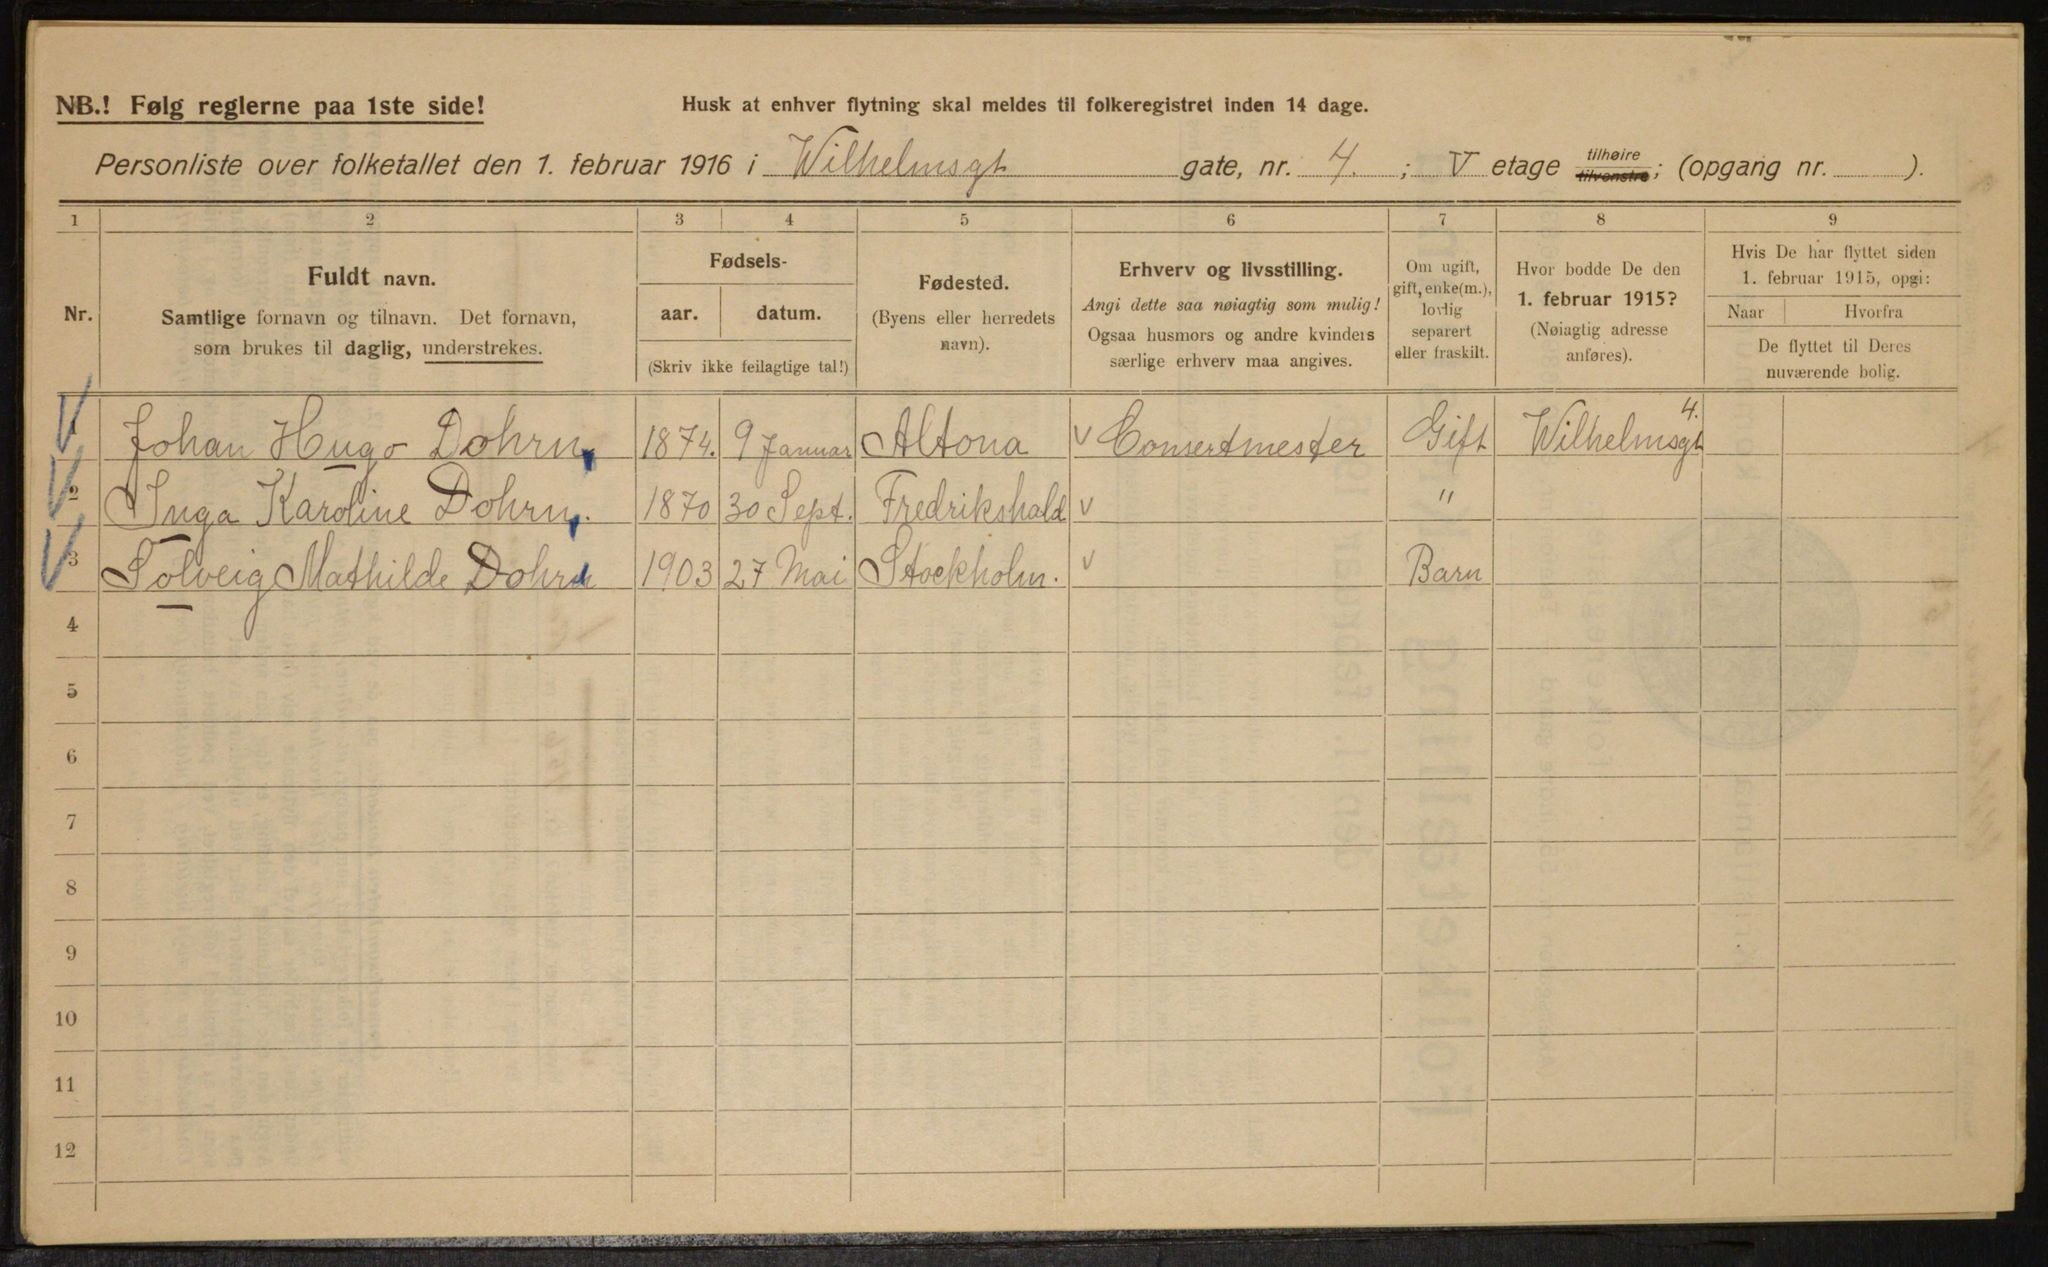 NB.! Følg reglerne paa 1ste side!
Husk at enhver flytning skal meldes til folkeregistret inden 14 dage.
Personliste over folketallet den 1. februar 1916 i Wilhelmsgt gate, nr. 4. ; V etage tilhøire tilvenstre; (opgang nr. ).
1 2 3 4 5 6 7 8 9
Nr.
Fuldt navn.
Samtlige fornavn og tilnavn. Det fornavn,
som brukes til daglig, understrekes.
Fødsels-
aar. datum.
(Skriv ikke feilagtige tal!)
Fødested.
(Byens eller herredets
navn).
Erhverv og livsstilling.
Angi dette saa nøiagtig som mulig!
Ogsaa husmors og andre kvinders
særlige erhverv maa angives.
Om ugift,
gift, enke(m.),
lovlig
separert
eller fraskilt.
Hvor bodde De den
1. februar 1915?
(Nøiagtig adresse
anføres).
Hvis De har flyttet siden
1. februar 1915, opgi:
Naar Hvorfra
De flyttet til Deres
nuværende bolig.
1 Johan Hugo Dohrn, 1874. 9 Januar Altona v Consertmester Gift Wilhelmsgt 4.
2 Inga Karoline Dohrn, 1870 30 Sept. Fredrikshald v "
3 Solveig Mathilde Dohrn 1903 27 Mai Stockholm. v Barn
4
5
6
7
8
9
10
11
12